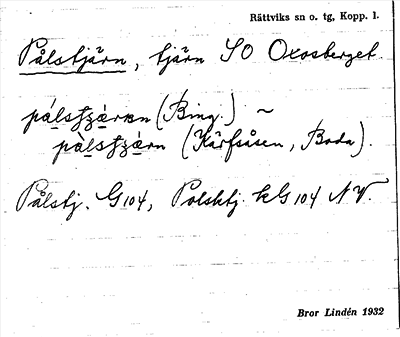 Rättviks sn o. tg, Kopp. l.
Pålstjärn, tjärn SO Oxosberget.
(Bing.) ~
(Kärfsåsen, Boda).
Pålstj. G 104, Polsktj. kG 104 NV.
Bror Lindén 1932